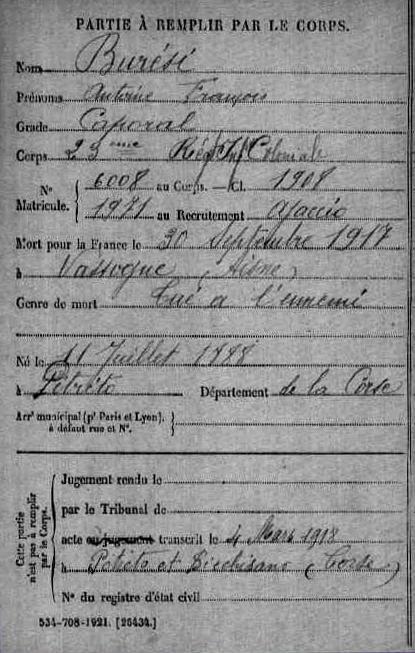 PARTIE À REMPLIR PAR LE CORPS.
Nom Burési
Prénoms Antoine François
Grade Caporal
Corps 23ème Rég. Inf. Coloniale
N° Matricule. { 6008 au Corps. — Cl. 1908
1971 au Recrutement Ajaccio
Mort pour la France le 30 Septembre 1917
à Vassogne (Aisne)
Genre de mort Tué à l'ennemi
Né le 11 Juillet 1888
à Pétréto Département de la Corse
Arrt municipal (pr Paris et Lyon),
à défaut rue et N°.
Cette partie n'est pas à remplir par le Corps.
Jugement rendu le
par le Tribunal de
acte ou jugement transcrit le 4 Mars 1918
à Petreto et Bicchisano (Corse)
N° du registre d'état civil
534-708-1921. [26434.]